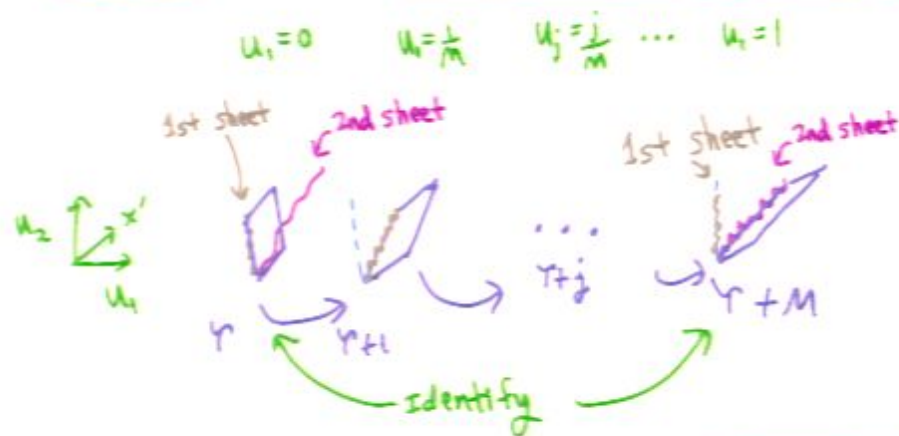 u₁=0 u₁=1/m uⱼ=j/m ... u₁=1
1st sheet 2nd sheet 1st sheet 2nd sheet
u₂ x'
u₁
... 
γ γ+1 γ+j γ+M
Identify